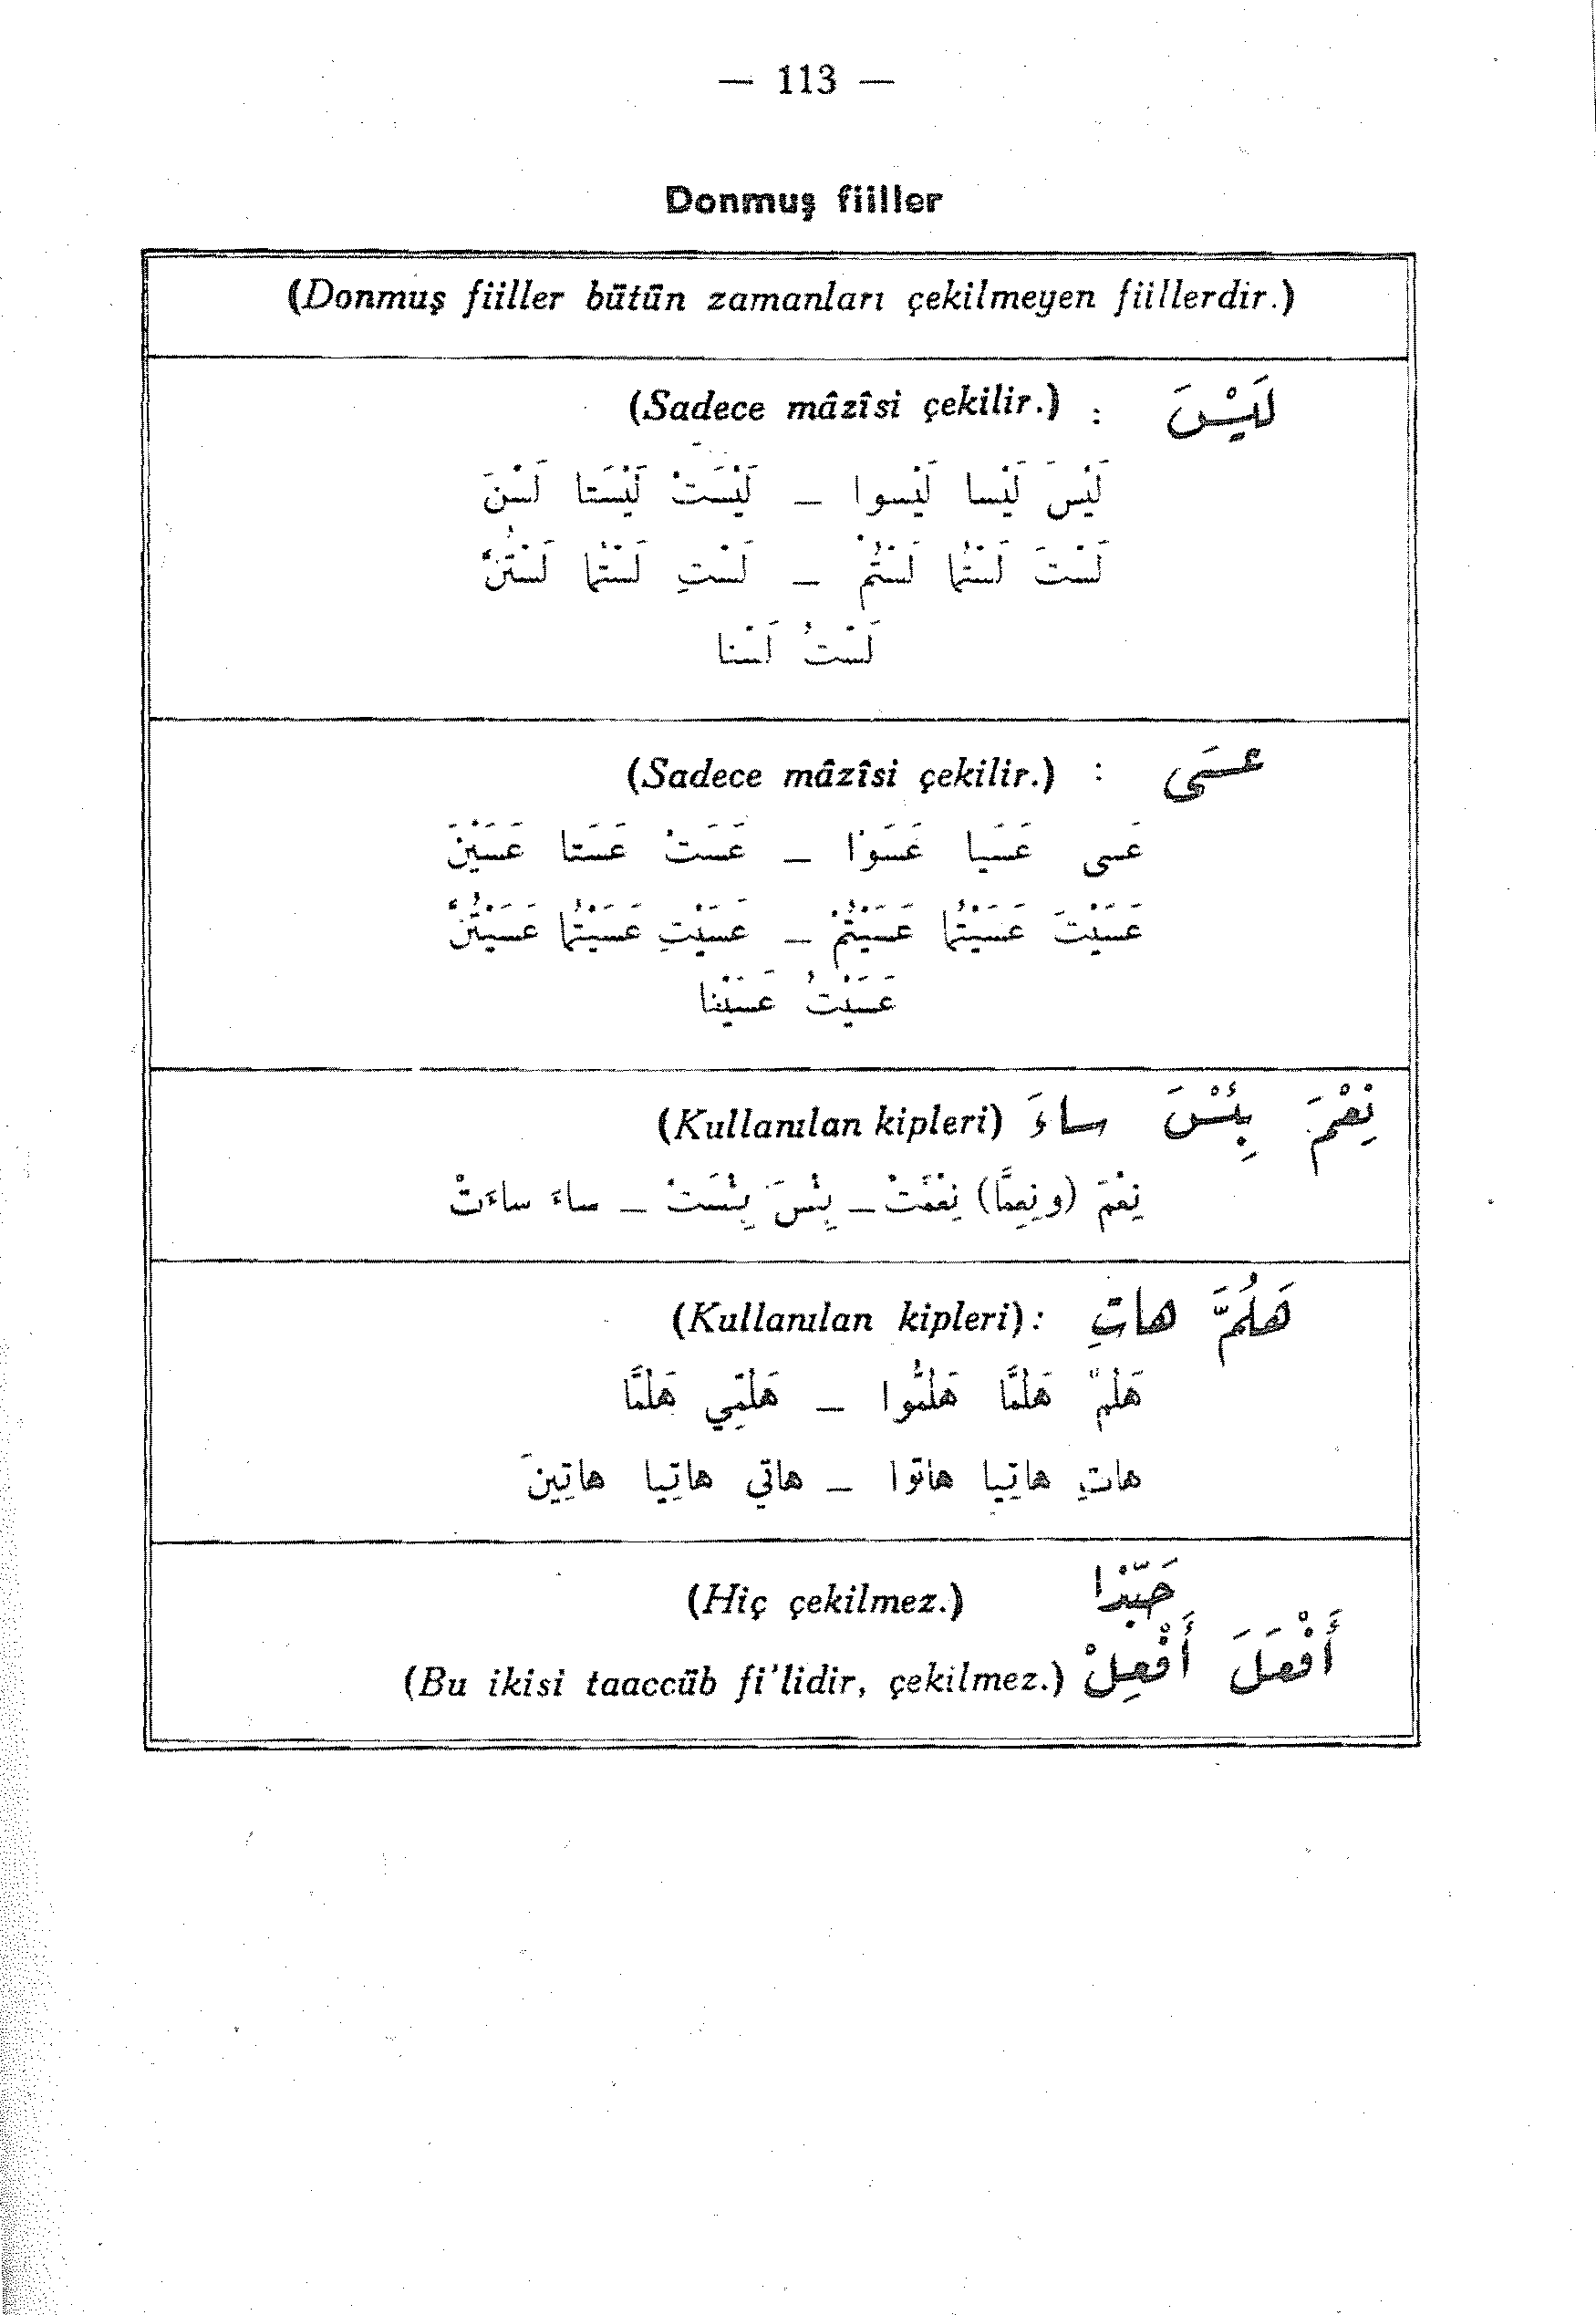 — 113 —
Donmuş fiiller
(Donmuş fiiller bütün zamanları çekilmeyen fiillerdir.)
لَيْسَ : (Sadece mâzîsi çekilir.)
لَيْسَ لَيْسا لَيْسوا – لَيْسَتْ لَيْسَتا لَسْنَ
لَسْتَ لَسْتُما لَسْتُمْ – لَسْتِ لَسْتُما لَسْتُنَّ
لَسْتُ لَسْنا
عسَى : (Sadece mâzîsi çekilir.)
عَسى عَسَيا عَسَوْا – عَسَتْ عَسَتا عَسَيْنَ
عَسَيْتَ عَسَيْتُما عَسَيْتُمْ – عَسَيْتِ عَسَيْتُما عَسَيْتُنَّ
عَسَيْتُ عَسَيْنا
نِعْمَ بِئْسَ ساءَ (Kullanılan kipleri)
نِعْمَ (ونِعِمَّا) نِعْمَتْ – بِئْسَ بِئْسَتْ – ساءَ ساءَتْ
هَلُمَّ هاتِ (Kullanılan kipleri) :
هَلُمَّ هَلُمَّا هَلُمُّوا – هَلُمِّي هَلُمَّا
هاتِ هاتِيا هاتوا – هاتي هاتِيا هاتِينَ
حَبّذا (Hiç çekilmez.)
أَفْعَلَ أَفْعِلْ (Bu ikisi taaccüb fi'lidir, çekilmez.)